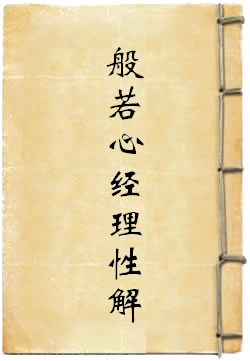 般若心经理性解